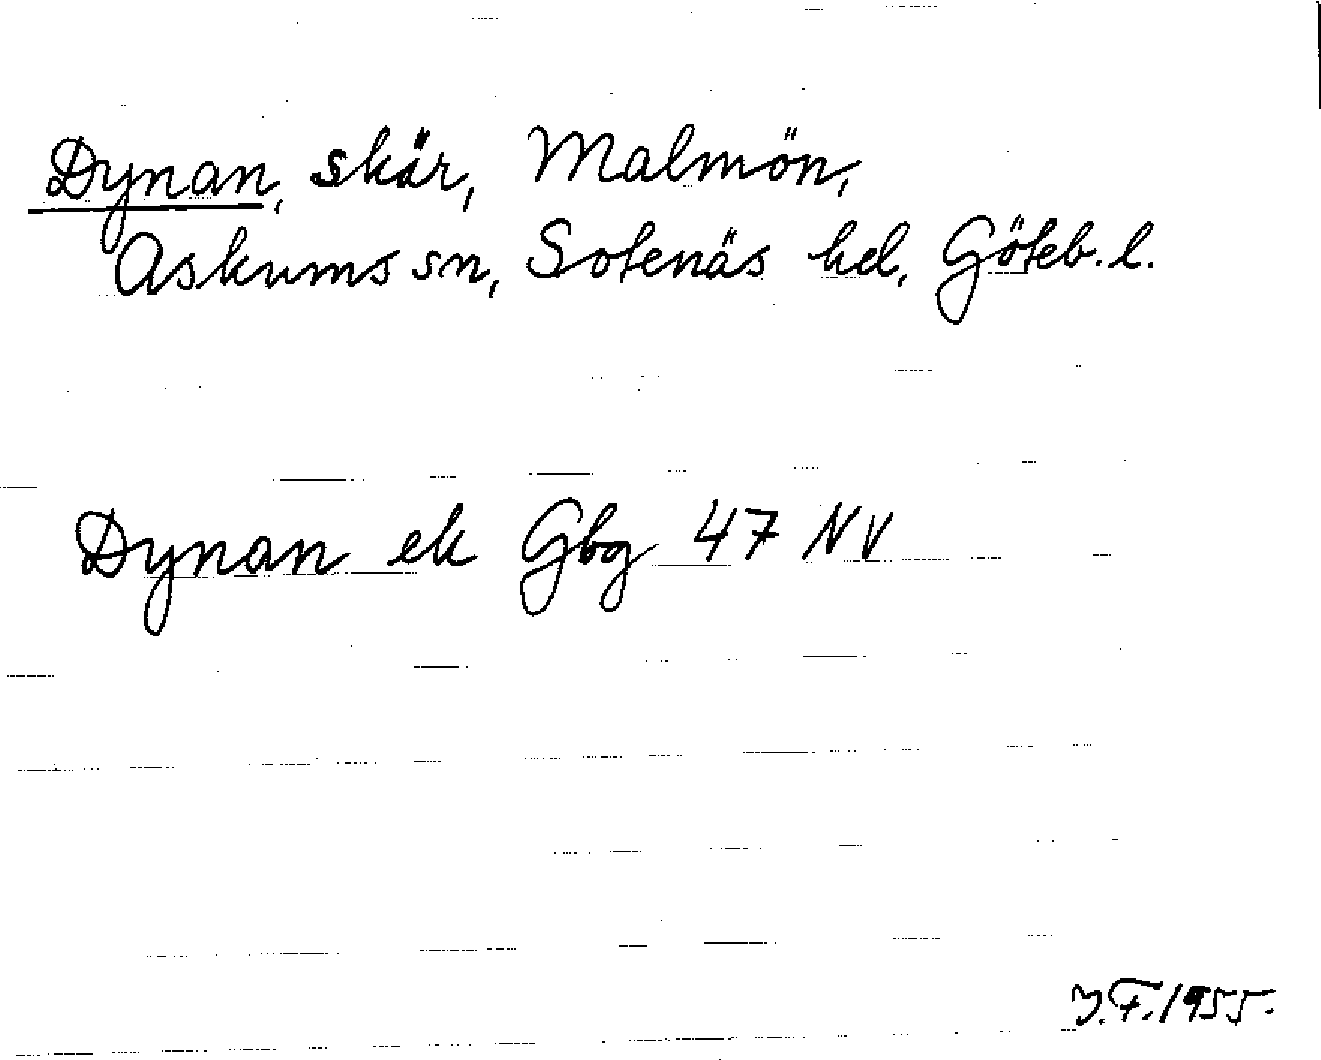 Dynan, skär, Malmön,
Askums sn, Sotenäs hd, Göteb. l.
Dynan ek Gbg 47 NV
J.F. 1955.